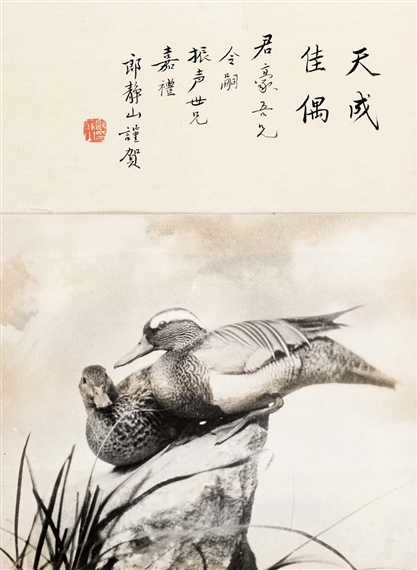 天成
佳偶
君豪吾兄
令嗣
振声世兄
嘉禮
郎静山謹贺